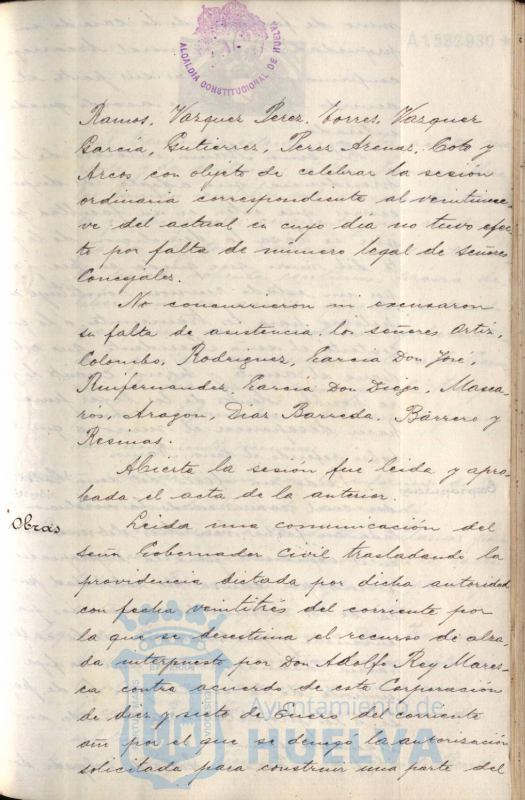 A1582930
ALCALDIA CONSTITUCIONAL DE HUELVA
Ramos, Vazquez Perez, Torres, Vazquez
Garcia, Gutierrez, Perez Arenas, Coto y
Arcos con objeto de celebrar la sesión
ordinaria correspondiente al veintinue-
ve del actual en cuyo dia no tuvo efec-
to por falta de número legal de señores
Concejales.
No concurrieron ni excusaron
su falta de asistencia los señores Ortiz,
Colombo, Rodriguez, Garcia Don José,
Ruifernandez, Garcia Don Diego, Masca-
rós, Aragon, Diaz Barreda, Barrero y
Resinas.
Abierta la sesión fué leida y apro-
bada el acta de la anterior.
Obras
Leida una comunicación del
señor Gobernador Civil trasladando la
providencia dictada por dicha autoridad
con fecha veintitrés del corriente por
la que se desestima el recurso de alza-
da interpuesto por Don Adolfo Rey Mares-
ca contra acuerdo de esta Corporación
de diez y siete de Enero del corriente
año por el que se denegó la autorización
solicitada para construir una parte del
Ayuntamiento de
HUELVA